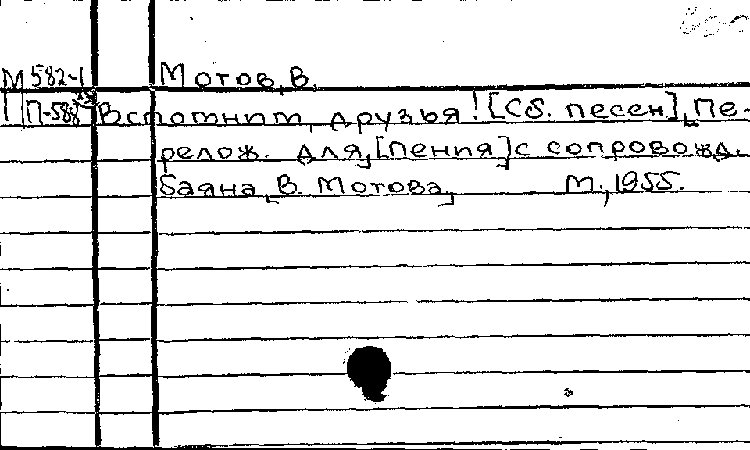 М 582-1 Мотов, В.
П-588 Вспомним, друзья! [Сб. песен]. Пе-
релож. для [пения] с сопровожд.
баяна В. Мотова. М., 1955.